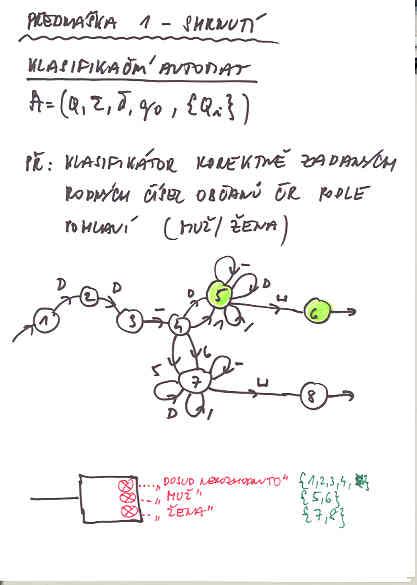 PŘEDNÁŠKA 1 - SHRNUTÍ
KLASIFIKAČNÍ AUTOMAT
A = (Q, Σ, δ, q0, {Qi})
PŘ: KLASIFIKÁTOR KOREKTNĚ ZADANÝCH
RODNÝCH ČÍSEL OBČANŮ ČR PODLE
POHLAVÍ (MUŽ/ŽENA)
D D - D 1 - D / ⊔
1 2 3 4 5 6
5 6 7 - D / ⊔ 8
"DOSUD NEROZHODNUTO" {1,2,3,4,
"MUŽ" {5,6}
"ŽENA" {7,8}